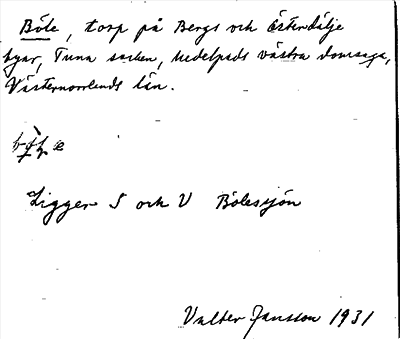 Böle, torp på Bergs och Österdälje
byar, Tuna socken, Medelpads västra domsaga,
Västernorrlands län.
Ligger S och V Bölesjön
Valter Jansson 1931